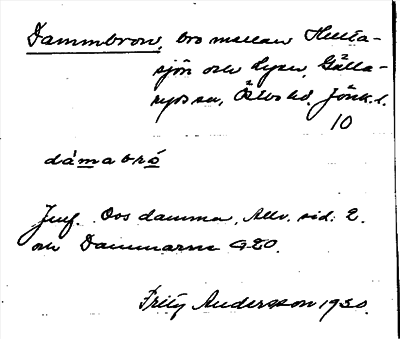 Dammbron, bro mellan Hulta-
sjön och Lyen, Gälla-
ryds sn, Östbo hd. Jönk. l.
10
dámabró
Jmf. Oos damma, Allv. sid. 2.
och Dammarne G20.
Fritz Andersson 1930.